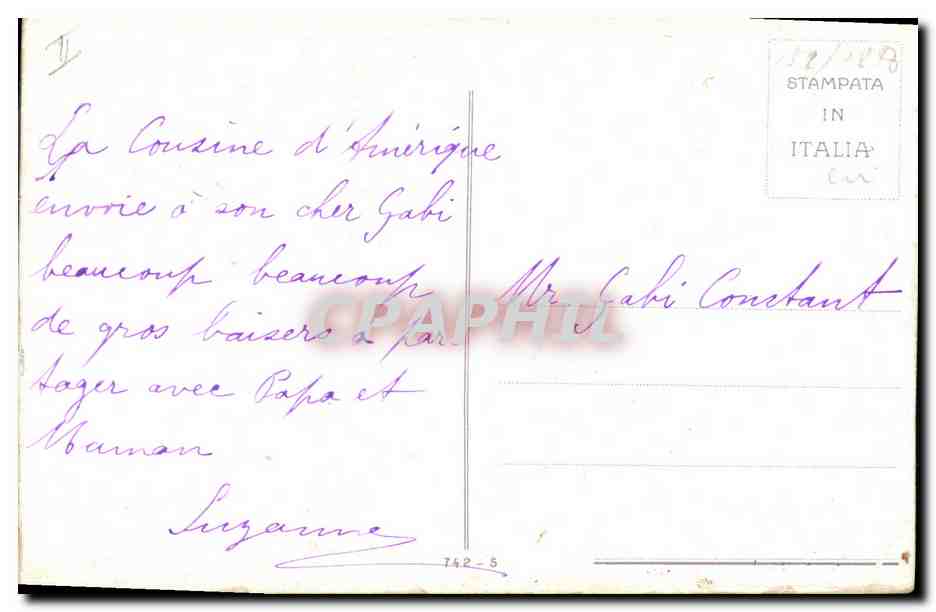 II
La Cousine d'Amérique
envoie à son cher Gabi
beaucoup beaucoup
de gros baisers à par
tager avec Papa et
Maman
Suzanne
STAMPATA
IN
ITALIA
Mr Gabi Constant
CPAPHIL
742-5